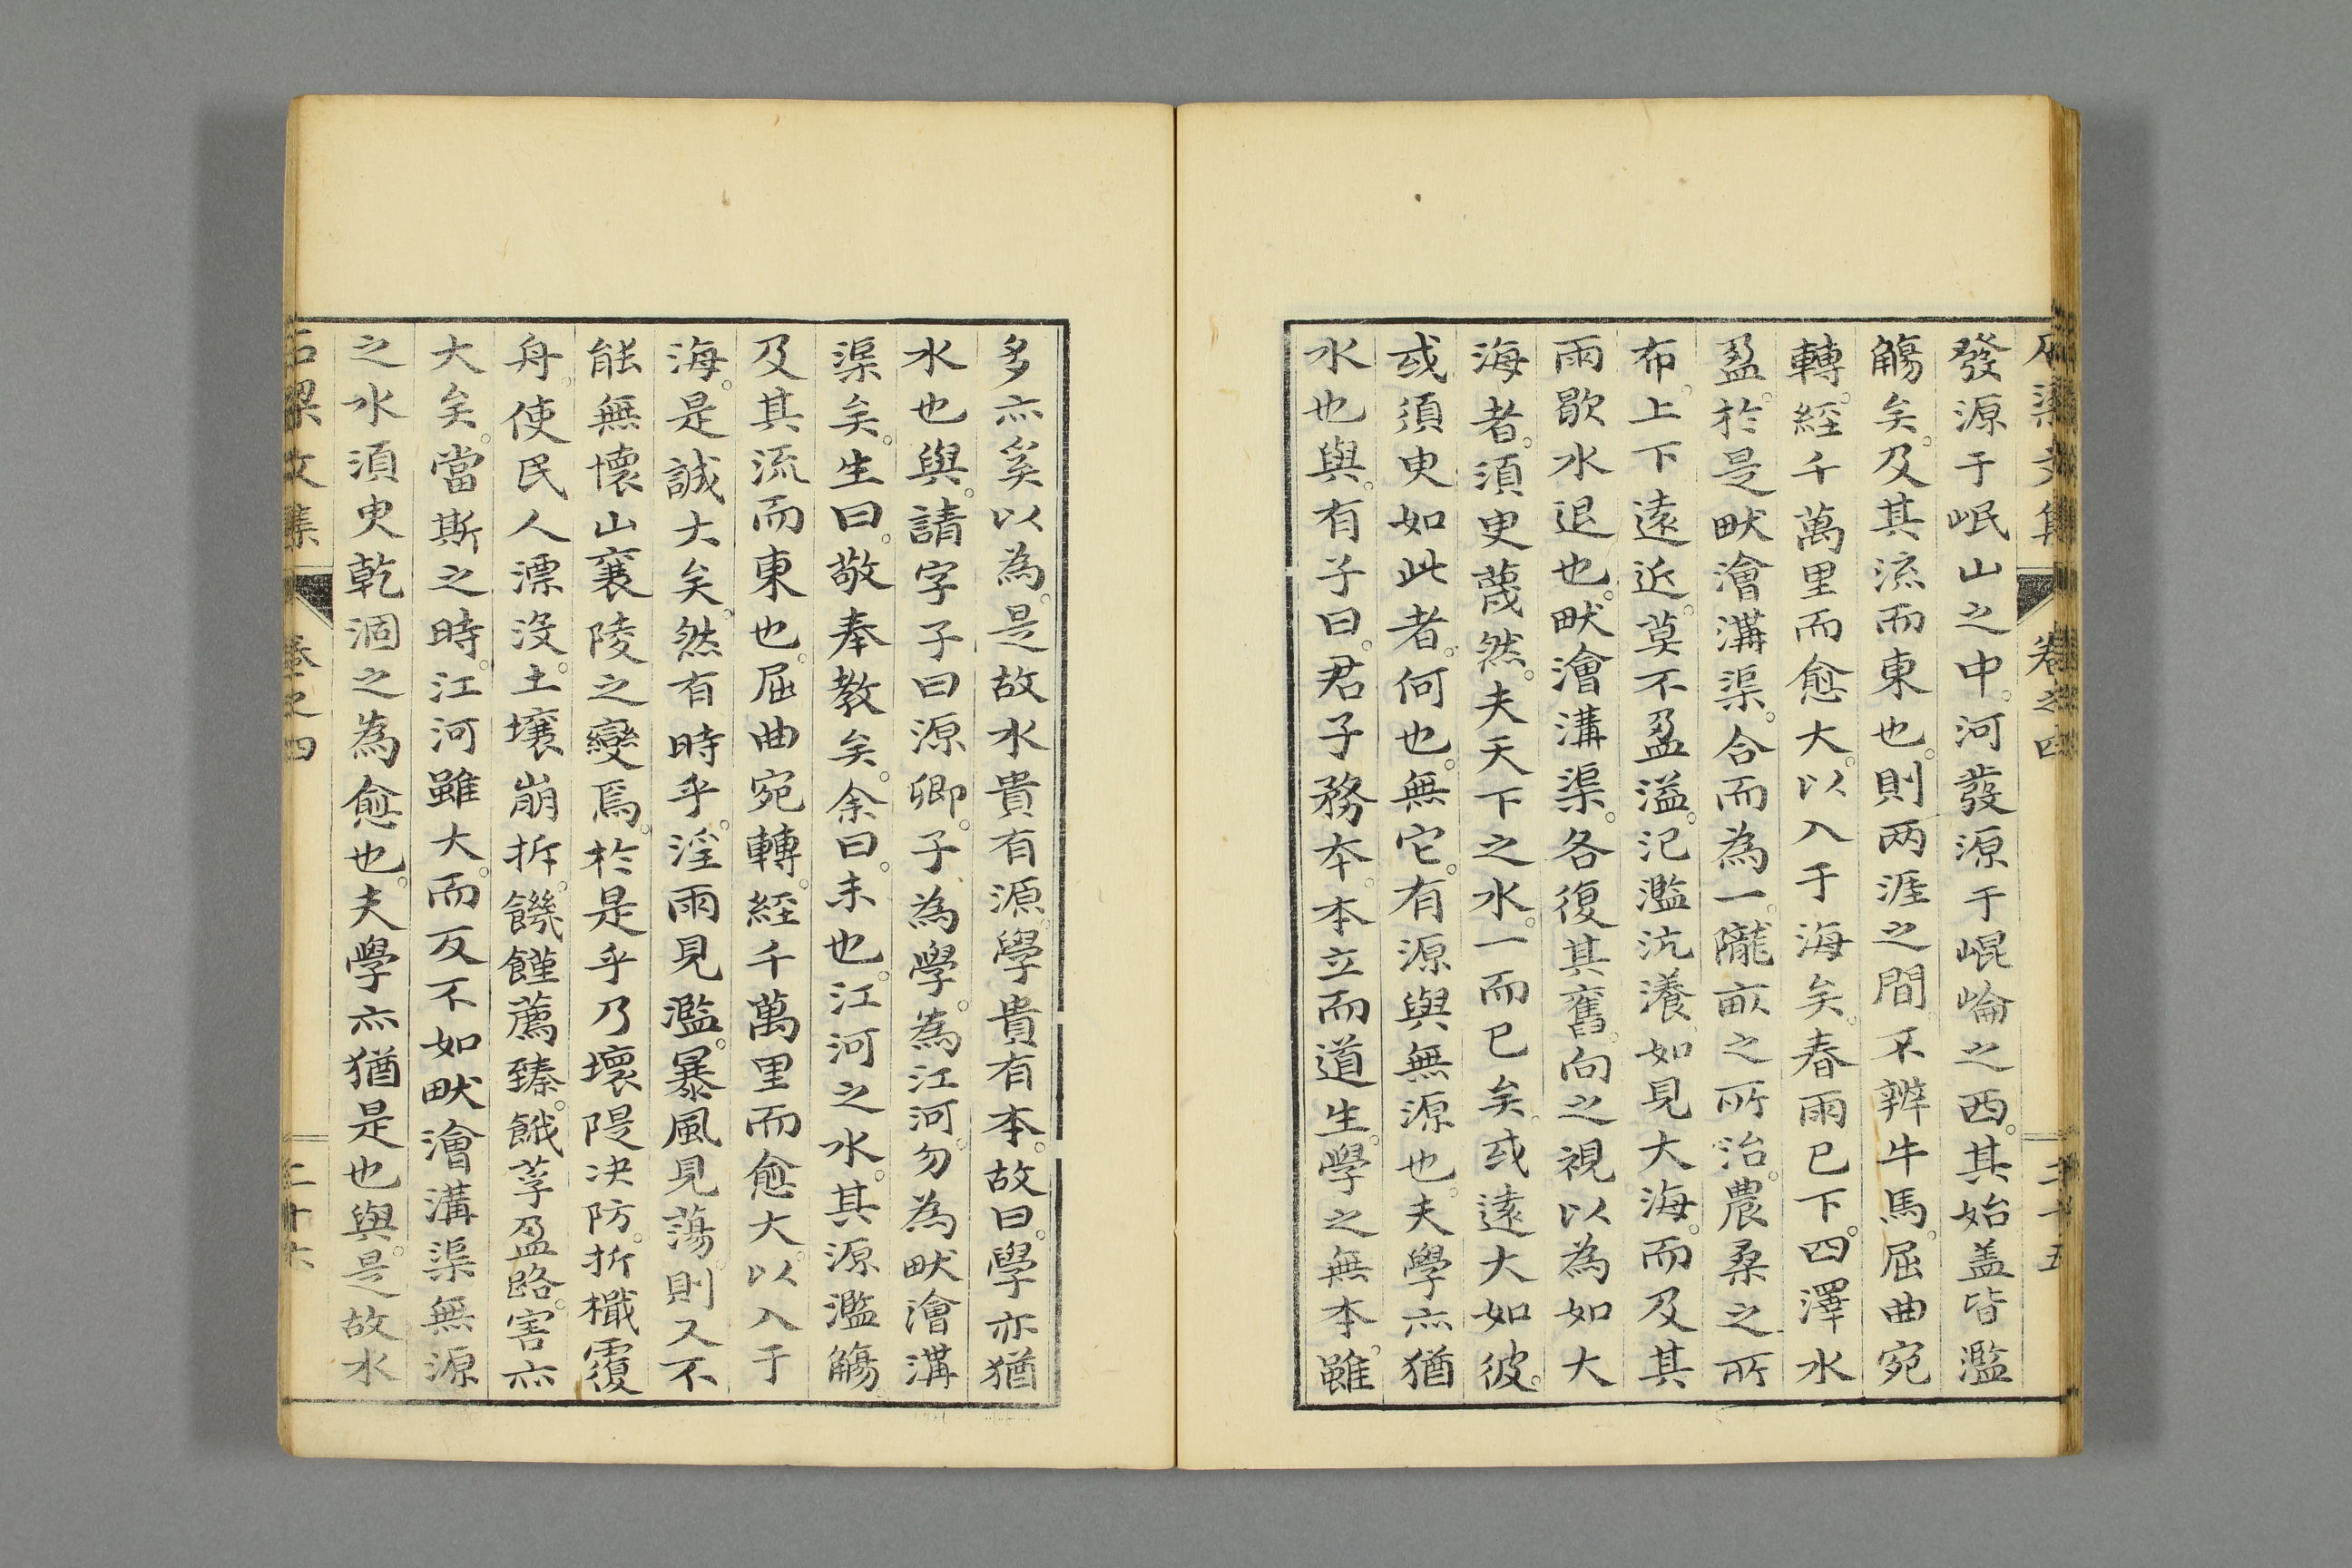 石梁文集 卷之四 二十五
發源于岷山之中。河發源于崐崘之西。其始盖皆濫
觴矣。及其流而東也。則两涯之間。不辨牛馬。屈曲宛
轉。經千萬里而愈大。以入于海矣。春雨已下。四澤水
盈。於是畎澮溝渠。合而為一。隴畝之所治。農桑之所
布。上下遠近。莫不盈溢。汜濫沆瀁。如見大海。而及其
雨歇水退也。畎澮溝渠。各復其舊。向之視以為如大
海者。須臾蔑然。夫天下之水。一而已矣。或遠大如彼。
或須臾如此者。何也。無它。有源與無源也。夫學亦猶
水也與。有子曰。君子務本。本立而道生。學之無本。雖
多亦奚以為。是故水貴有源。學貴有本。故曰。學亦猶
水也與。請字子曰源卿。子為學。為江河。勿為畎澮溝
渠矣。生曰。敬奉教矣。余曰。未也。江河之水。其源濫觴。
及其流而東也。屈曲宛轉。經千萬里而愈大。以入于
海。是誠大矣。然有時乎。淫雨見濫。暴風見蕩。則又不
能無懷山襄陵之變焉。於是乎乃壞隄决防。折檥覆
舟。使民人漂沒。土壤崩拆。饑饉薦臻。餓莩盈路。害亦
大矣。當斯之時。江河雖大。而反不如畎澮溝渠無源
之水須臾乾涸之為愈也。夫學亦猶是也與。是故水
石梁文集 卷之四 二十六